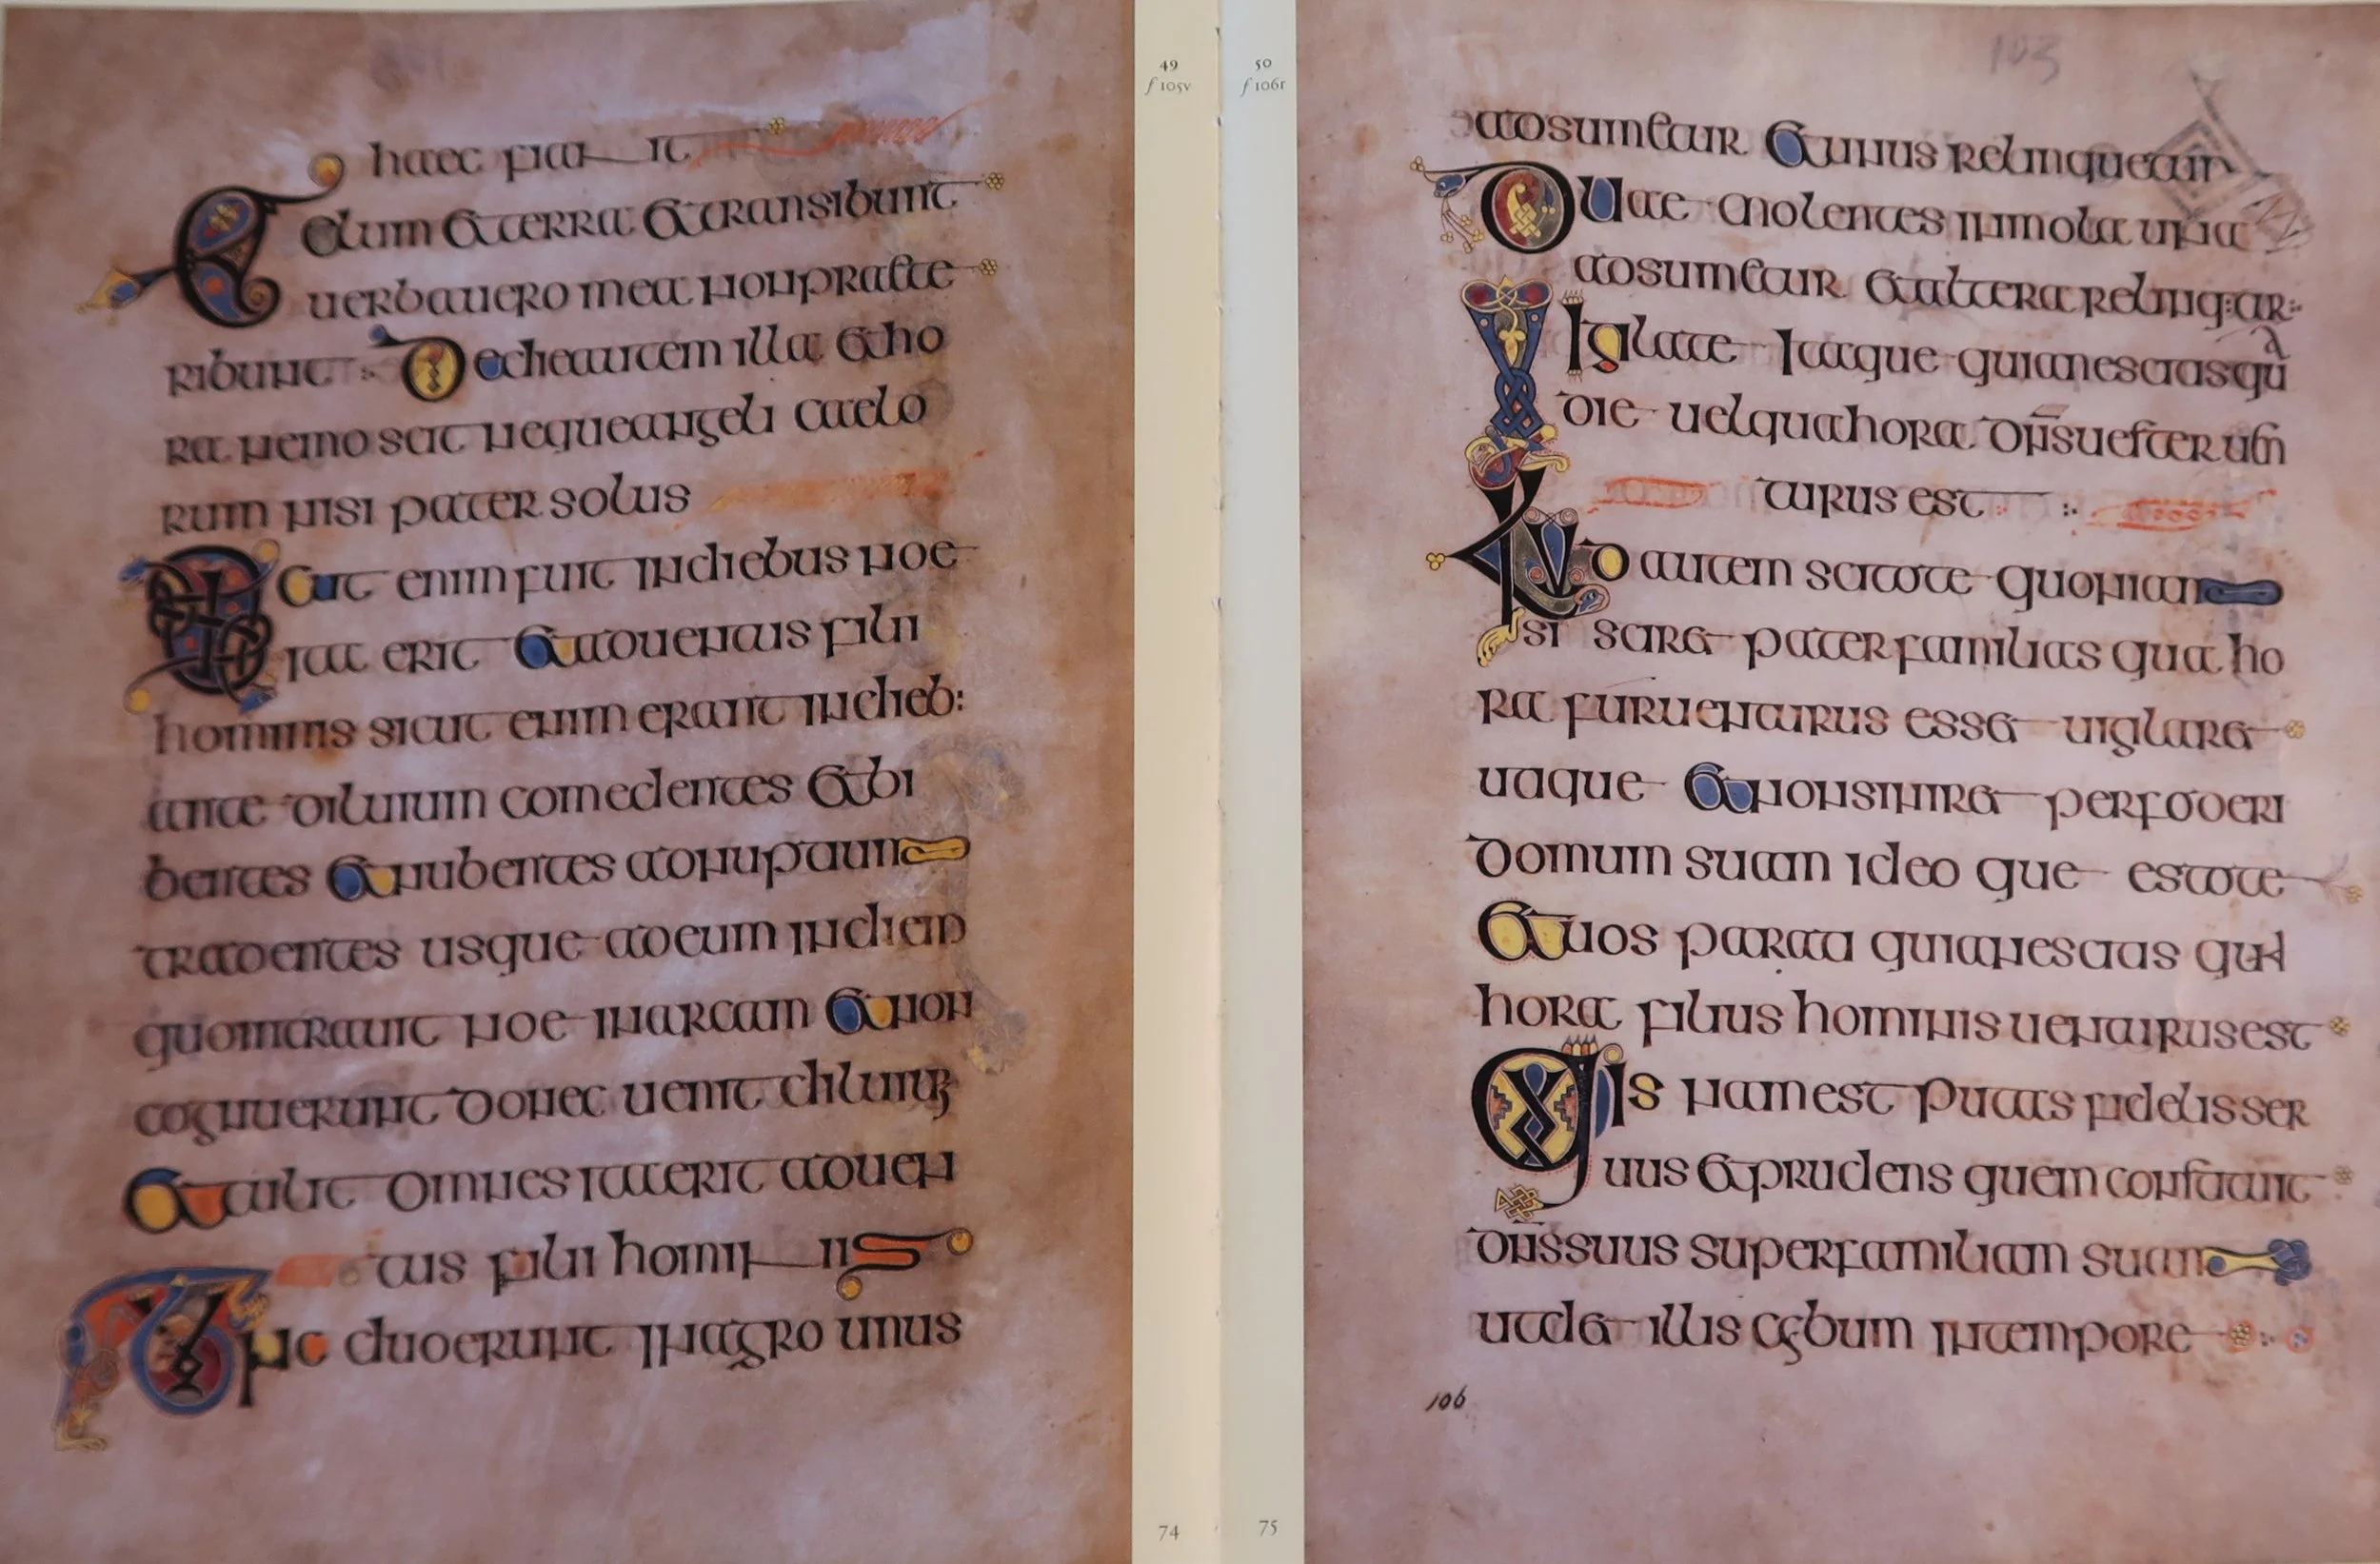 49
f 105v
haec fiant
Celum et terra et transibunt
uerba uero mea non praete
ribunt De die autem illa et ho
ra nemo scit neque angeli caelo
rum nisi pater solus
Sicut enim fuit in diebus noe
ita erit et aduentus filii
hominis sicut enim erant in dieb:
ante diluium comedentes et bi
bentes et nubentes ad nuptaum
tradentes usque ad eum in diem
quo intrauit noe in arcam et non
cognuerunt donec uenit diluium
et tulit omnes ita erit aduen
tus filii hominis
Tunc duo erunt in agro unus
74
50
f 106r
103
adsumetur et unus relinquetur
Duae molentes in mola una
adsumetur et altera relinq:ar:
Vigilate itaque quia nescitis qua
die uel qua hora dn̄s uester uen
turus est
Illud autem scitote quoniam
si sciret pater familias qua ho
ra fur uenturus esset uiglaret
utique et non sineret perfodiri
domum suam ideo que estote
et uos parati quia nescitis qua
hora filius hominis uenturus est
Quis nam est putas fidelis ser
uus et prudens quem constituit
dn̄s suus super familiam suam
ut det illis cybum in tempore
106
75